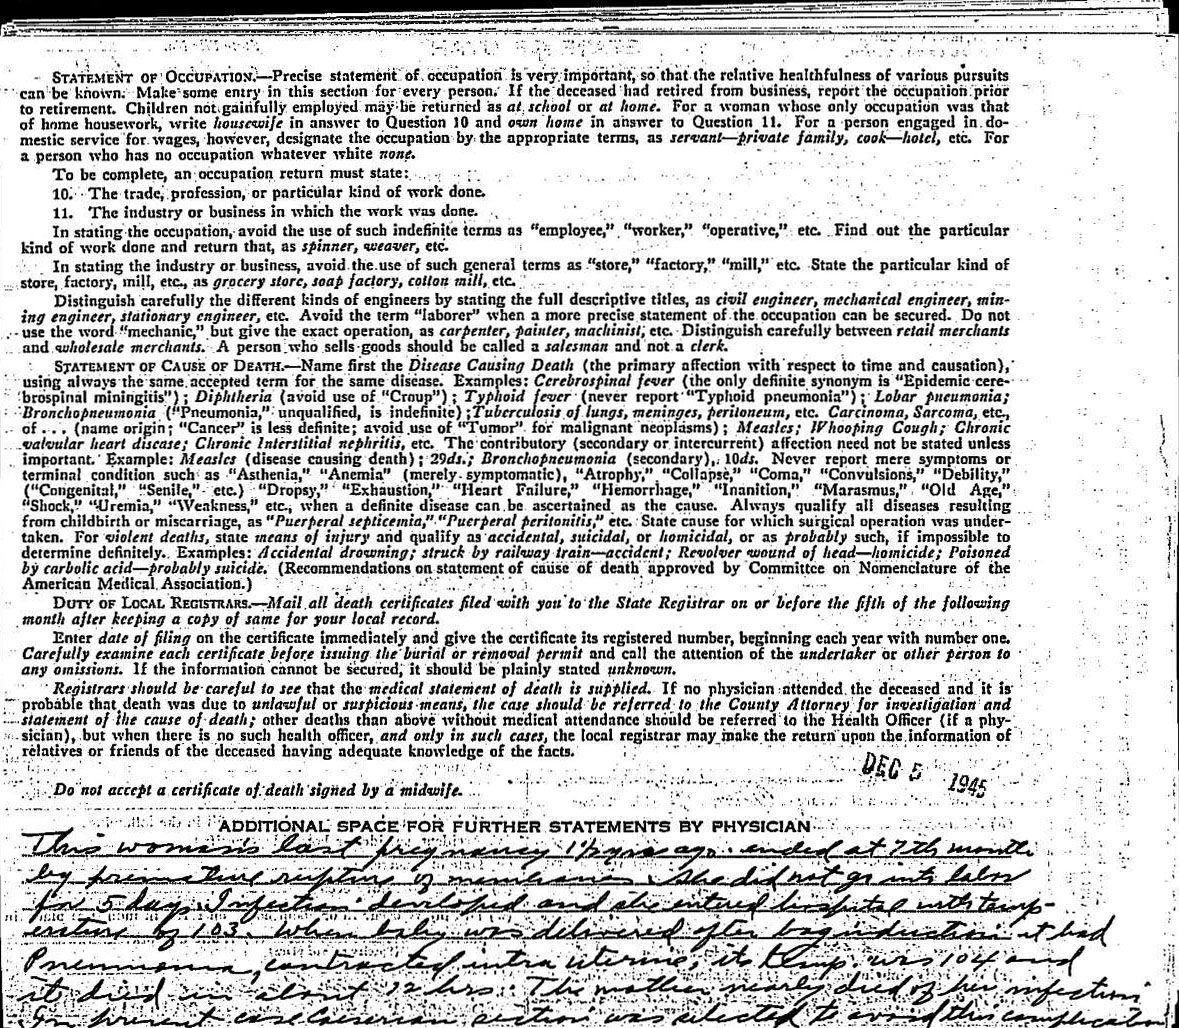 STATEMENT OF OCCUPATION.—Precise statement of occupation is very important, so that the relative healthfulness of various pursuits
can be known. Make some entry in this section for every person. If the deceased had retired from business, report the occupation prior
to retirement. Children not gainfully employed may be returned as at school or at home. For a woman whose only occupation was that
of home housework, write housewife in answer to Question 10 and own home in answer to Question 11. For a person engaged in do-
mestic service for wages, however, designate the occupation by the appropriate terms, as servant—private family, cook—hotel, etc. For
a person who has no occupation whatever white none.
To be complete, an occupation return must state:
10. The trade, profession, or particular kind of work done.
11. The industry or business in which the work was done.
In stating the occupation, avoid the use of such indefinite terms as "employee," "worker," "operative," etc. Find out the particular
kind of work done and return that, as spinner, weaver, etc.
In stating the industry or business, avoid the use of such general terms as "store," "factory," "mill," etc. State the particular kind of
store, factory, mill, etc., as grocery store, soap factory, cotton mill, etc.
Distinguish carefully the different kinds of engineers by stating the full descriptive titles, as civil engineer, mechanical engineer, min-
ing engineer, stationary engineer, etc. Avoid the term "laborer" when a more precise statement of the occupation can be secured. Do not
use the word "mechanic," but give the exact operation, as carpenter, painter, machinist, etc. Distinguish carefully between retail merchants
and wholesale merchants. A person who sells goods should be called a salesman and not a clerk.
STATEMENT OF CAUSE OF DEATH.—Name first the Disease Causing Death (the primary affection with respect to time and causation),
using always the same accepted term for the same disease. Examples: Cerebrospinal fever (the only definite synonym is "Epidemic cere-
brospinal miningitis"); Diphtheria (avoid use of "Croup"); Typhoid fever (never report "Typhoid pneumonia"); Lobar pneumonia;
Bronchopneumonia ("Pneumonia," unqualified, is indefinite); Tuberculosis of lungs, meninges, peritoneum, etc. Carcinoma, Sarcoma, etc.,
of . . . (name origin; "Cancer" is less definite; avoid use of "Tumor" for malignant neoplasms); Measles; Whooping Cough; Chronic
valvular heart disease; Chronic Interstitial nephritis, etc. The contributory (secondary or intercurrent) affection need not be stated unless
important. Example: Measles (disease causing death); 29ds.; Bronchopneumonia (secondary), 10ds. Never report mere symptoms or
terminal condition such as "Asthenia," "Anemia" (merely symptomatic), "Atrophy," "Collapse," "Coma," "Convulsions," "Debility,"
("Congenital," "Senile," etc.) "Dropsy," "Exhaustion," "Heart Failure," "Hemorrhage," "Inanition," "Marasmus," "Old Age,"
"Shock," "Uremia," "Weakness," etc., when a definite disease can be ascertained as the cause. Always qualify all diseases resulting
from childbirth or miscarriage, as "Puerperal septicemia," "Puerperal peritonitis," etc. State cause for which surgical operation was under-
taken. For violent deaths, state means of injury and qualify as accidental, suicidal, or homicidal, or as probably such, if impossible to
determine definitely. Examples: Accidental drowning; struck by railway train—accident; Revolver wound of head—homicide; Poisoned
by carbolic acid—probably suicide. (Recommendations on statement of cause of death approved by Committee on Nomenclature of the
American Medical Association.)
DUTY OF LOCAL REGISTRARS.—Mail all death certificates filed with you to the State Registrar on or before the fifth of the following
month after keeping a copy of same for your local record.
Enter date of filing on the certificate immediately and give the certificate its registered number, beginning each year with number one.
Carefully examine each certificate before issuing the burial or removal permit and call the attention of the undertaker or other person to
any omissions. If the information cannot be secured, it should be plainly stated unknown.
Registrars should be careful to see that the medical statement of death is supplied. If no physician attended the deceased and it is
probable that death was due to unlawful or suspicious means, the case should be referred to the County Attorney for investigation and
statement of the cause of death; other deaths than above without medical attendance should be referred to the Health Officer (if a phy-
sician), but when there is no such health officer, and only in such cases, the local registrar may make the return upon the information of
relatives or friends of the deceased having adequate knowledge of the facts.
DEC 5 1945
Do not accept a certificate of death signed by a midwife.
ADDITIONAL SPACE FOR FURTHER STATEMENTS BY PHYSICIAN
This woman's last pregnancy 1½ yrs ago ended at 7th month
by premature rupture of membranes. She did not go into labor
for 5 days. Infection developed and she entered hospital with temp-
erature of 103. When baby was delivered after bag induction it had
Pneumonia, contracted intra uterine, its temp. was 104 and
it died in about 12 hrs. The mother nearly died of her infection
In present case Caeserian section was elected to avoid this complication